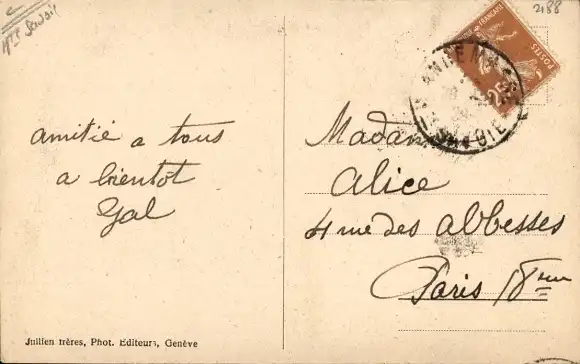 Hte Savoie
2188
FRANÇAISE
POSTES
25c
ANNEMASSE
Hte SAVOIE
amitié a tous
a bientot
Gal
Madame
Alice
4 rue des abbesses
Paris 18eme
Jullien frères, Phot. Editeurs, Genève